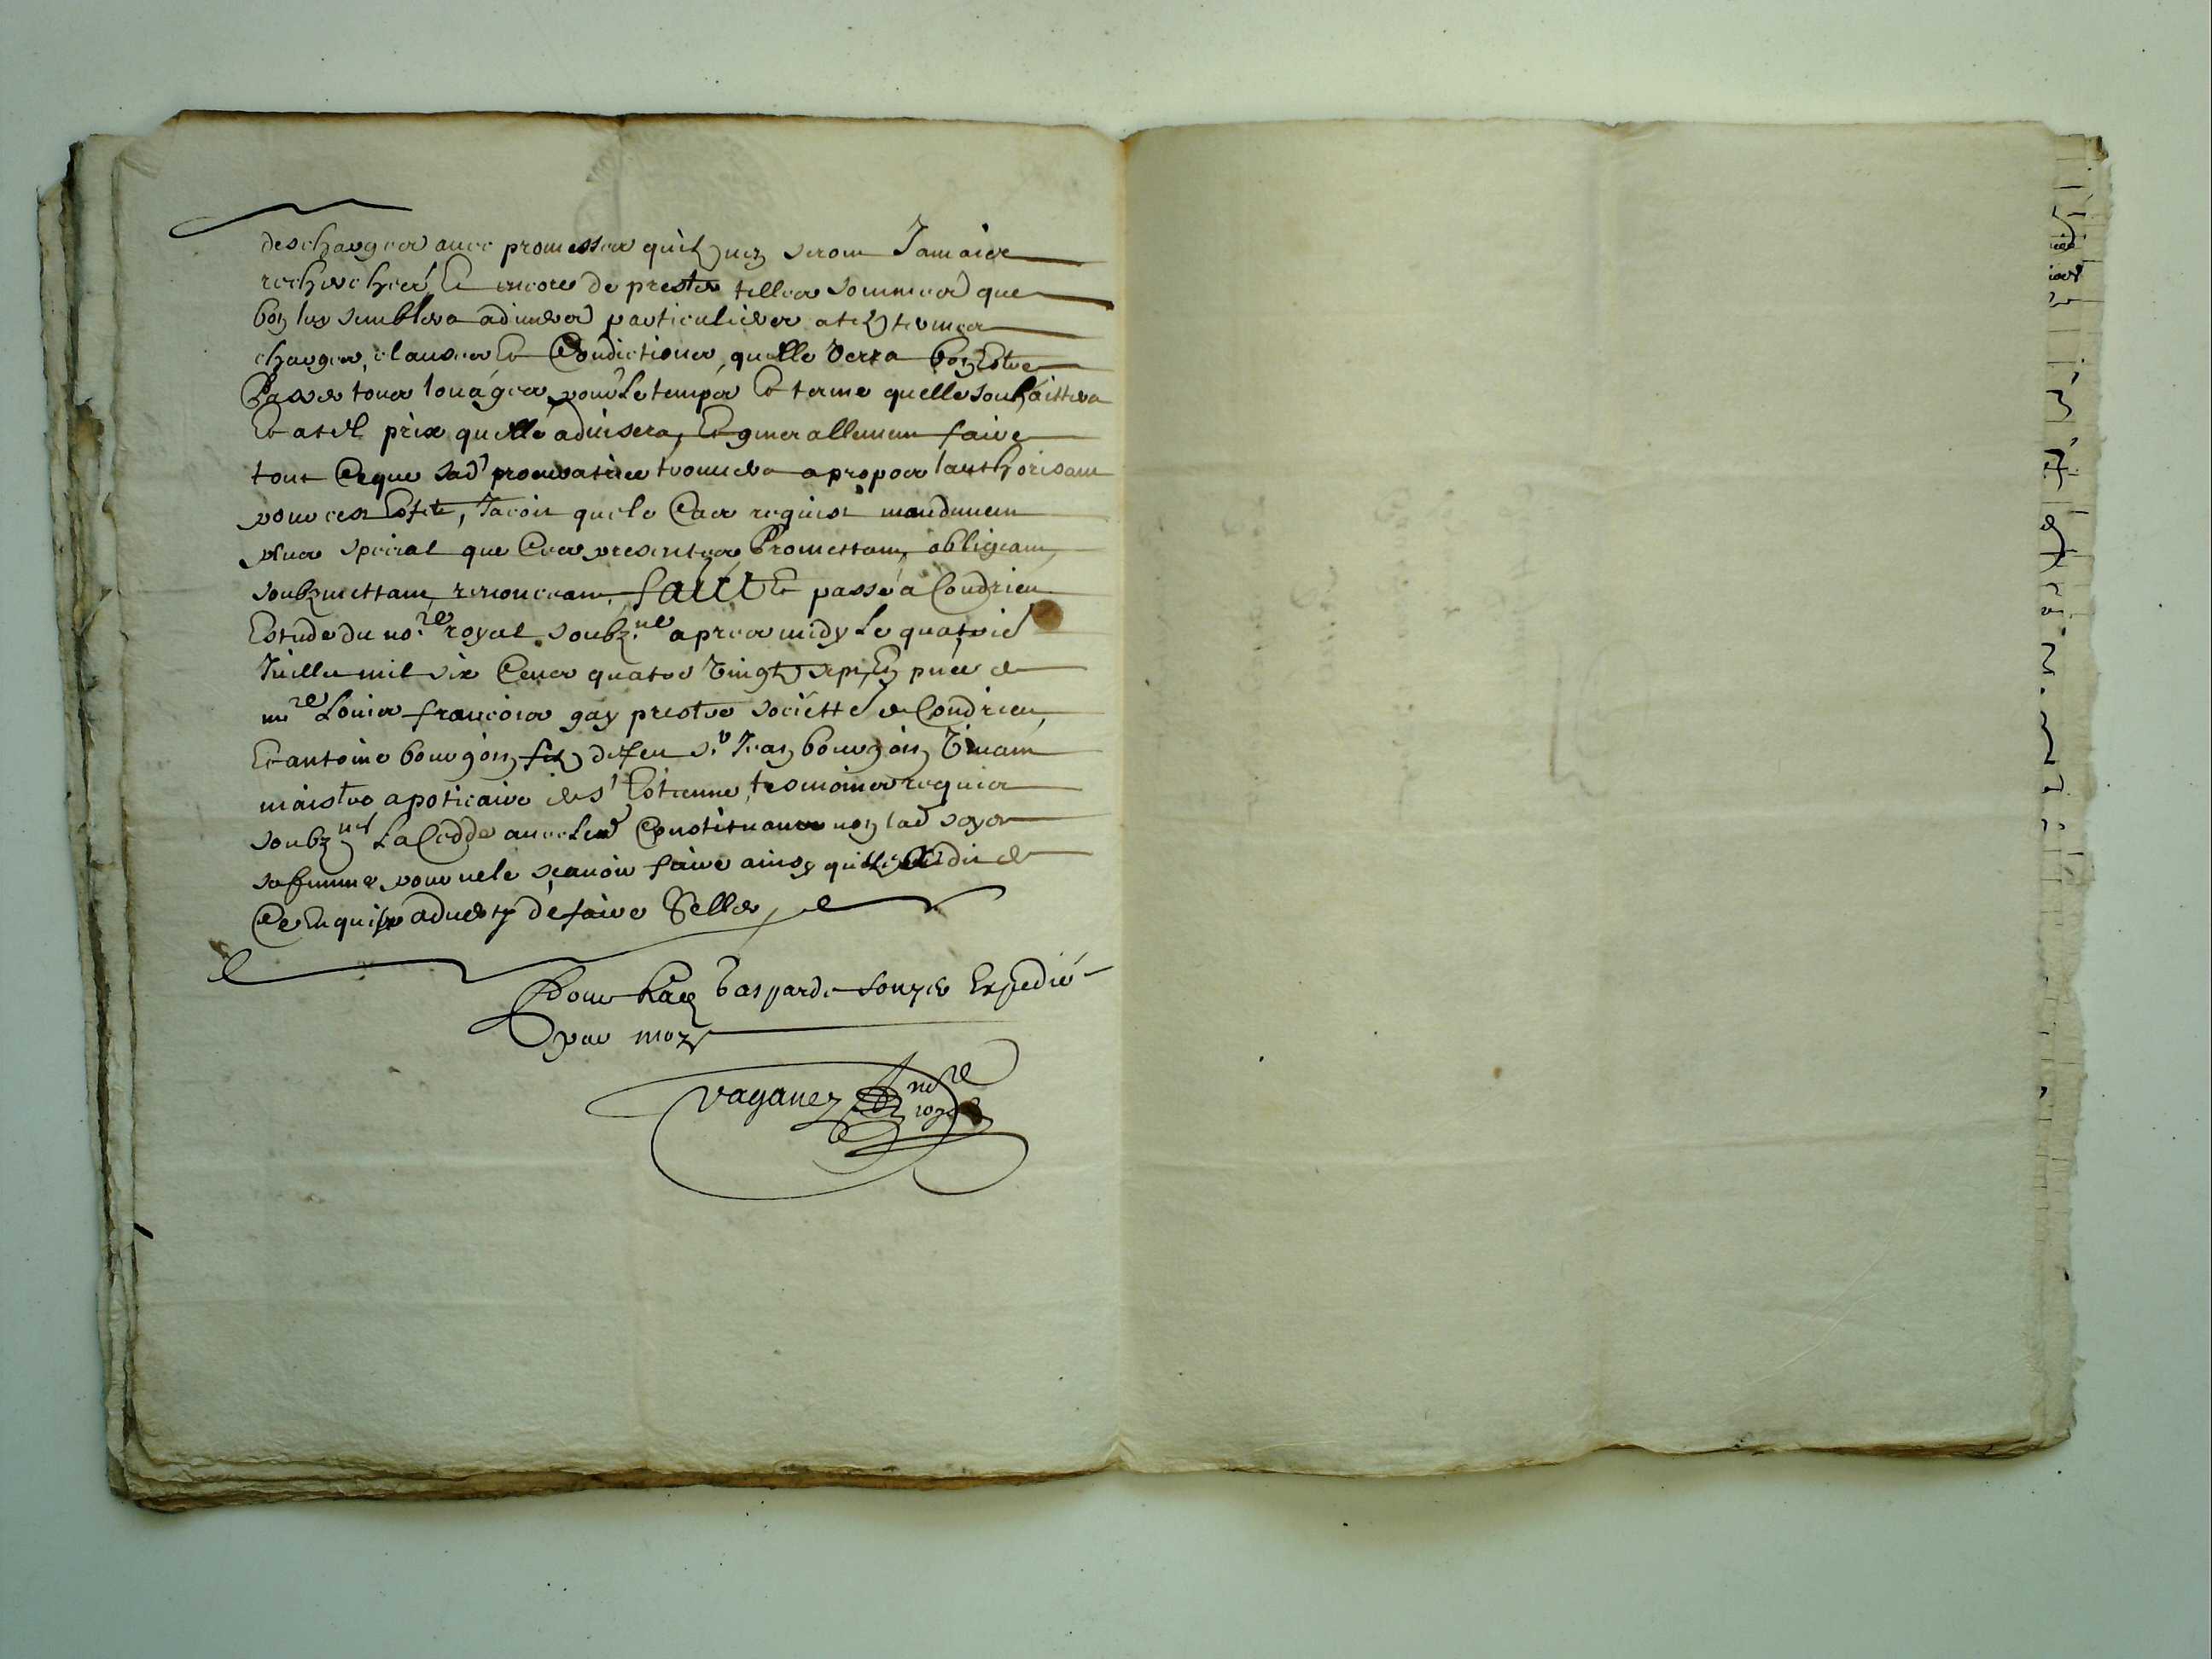 descharges avec promesses quilz nen seront Jamais
recherchés, Et encore de prester telles sommes que
bon luy semblera a divers particuliers a telz termes
charges, clauses Et Condictions quelle verra bon Estre
Passer tous louages, pour Le temps Et terme quelle souhaittera
Et a tel prix quelle advisera, Et generallement faire
tout Ce que sad procuratrice trouvera a propos lauthorisant
pour cest Effet, Jacoit que le Cas requist mandement
plus special que Ces presentes Promettant, obligeant,
soubzmettant, renonceant, faict Et passé a Condrieu
Estude du no.re royal soubz.né apres midy Le quatrie
Juillet mil six Cens quatre vingtz sept, En pnce de
m.re Louis françois gay prestre société de Condrieu,
Et antoine bourgoin filz de feu s.r Jean bourgoin vivant
maistre apoticaire de s.t Estienne, tesmoins requis
soubz.nés La Cedde avec led Constituant non lad soyer
sa femme pour ne le sçavoir faire ainsy quelle a dit de
Ce Enquise adverty de faire seller
Pour lad gasparde souyer Expedié
par moy
vaganey no.re royal